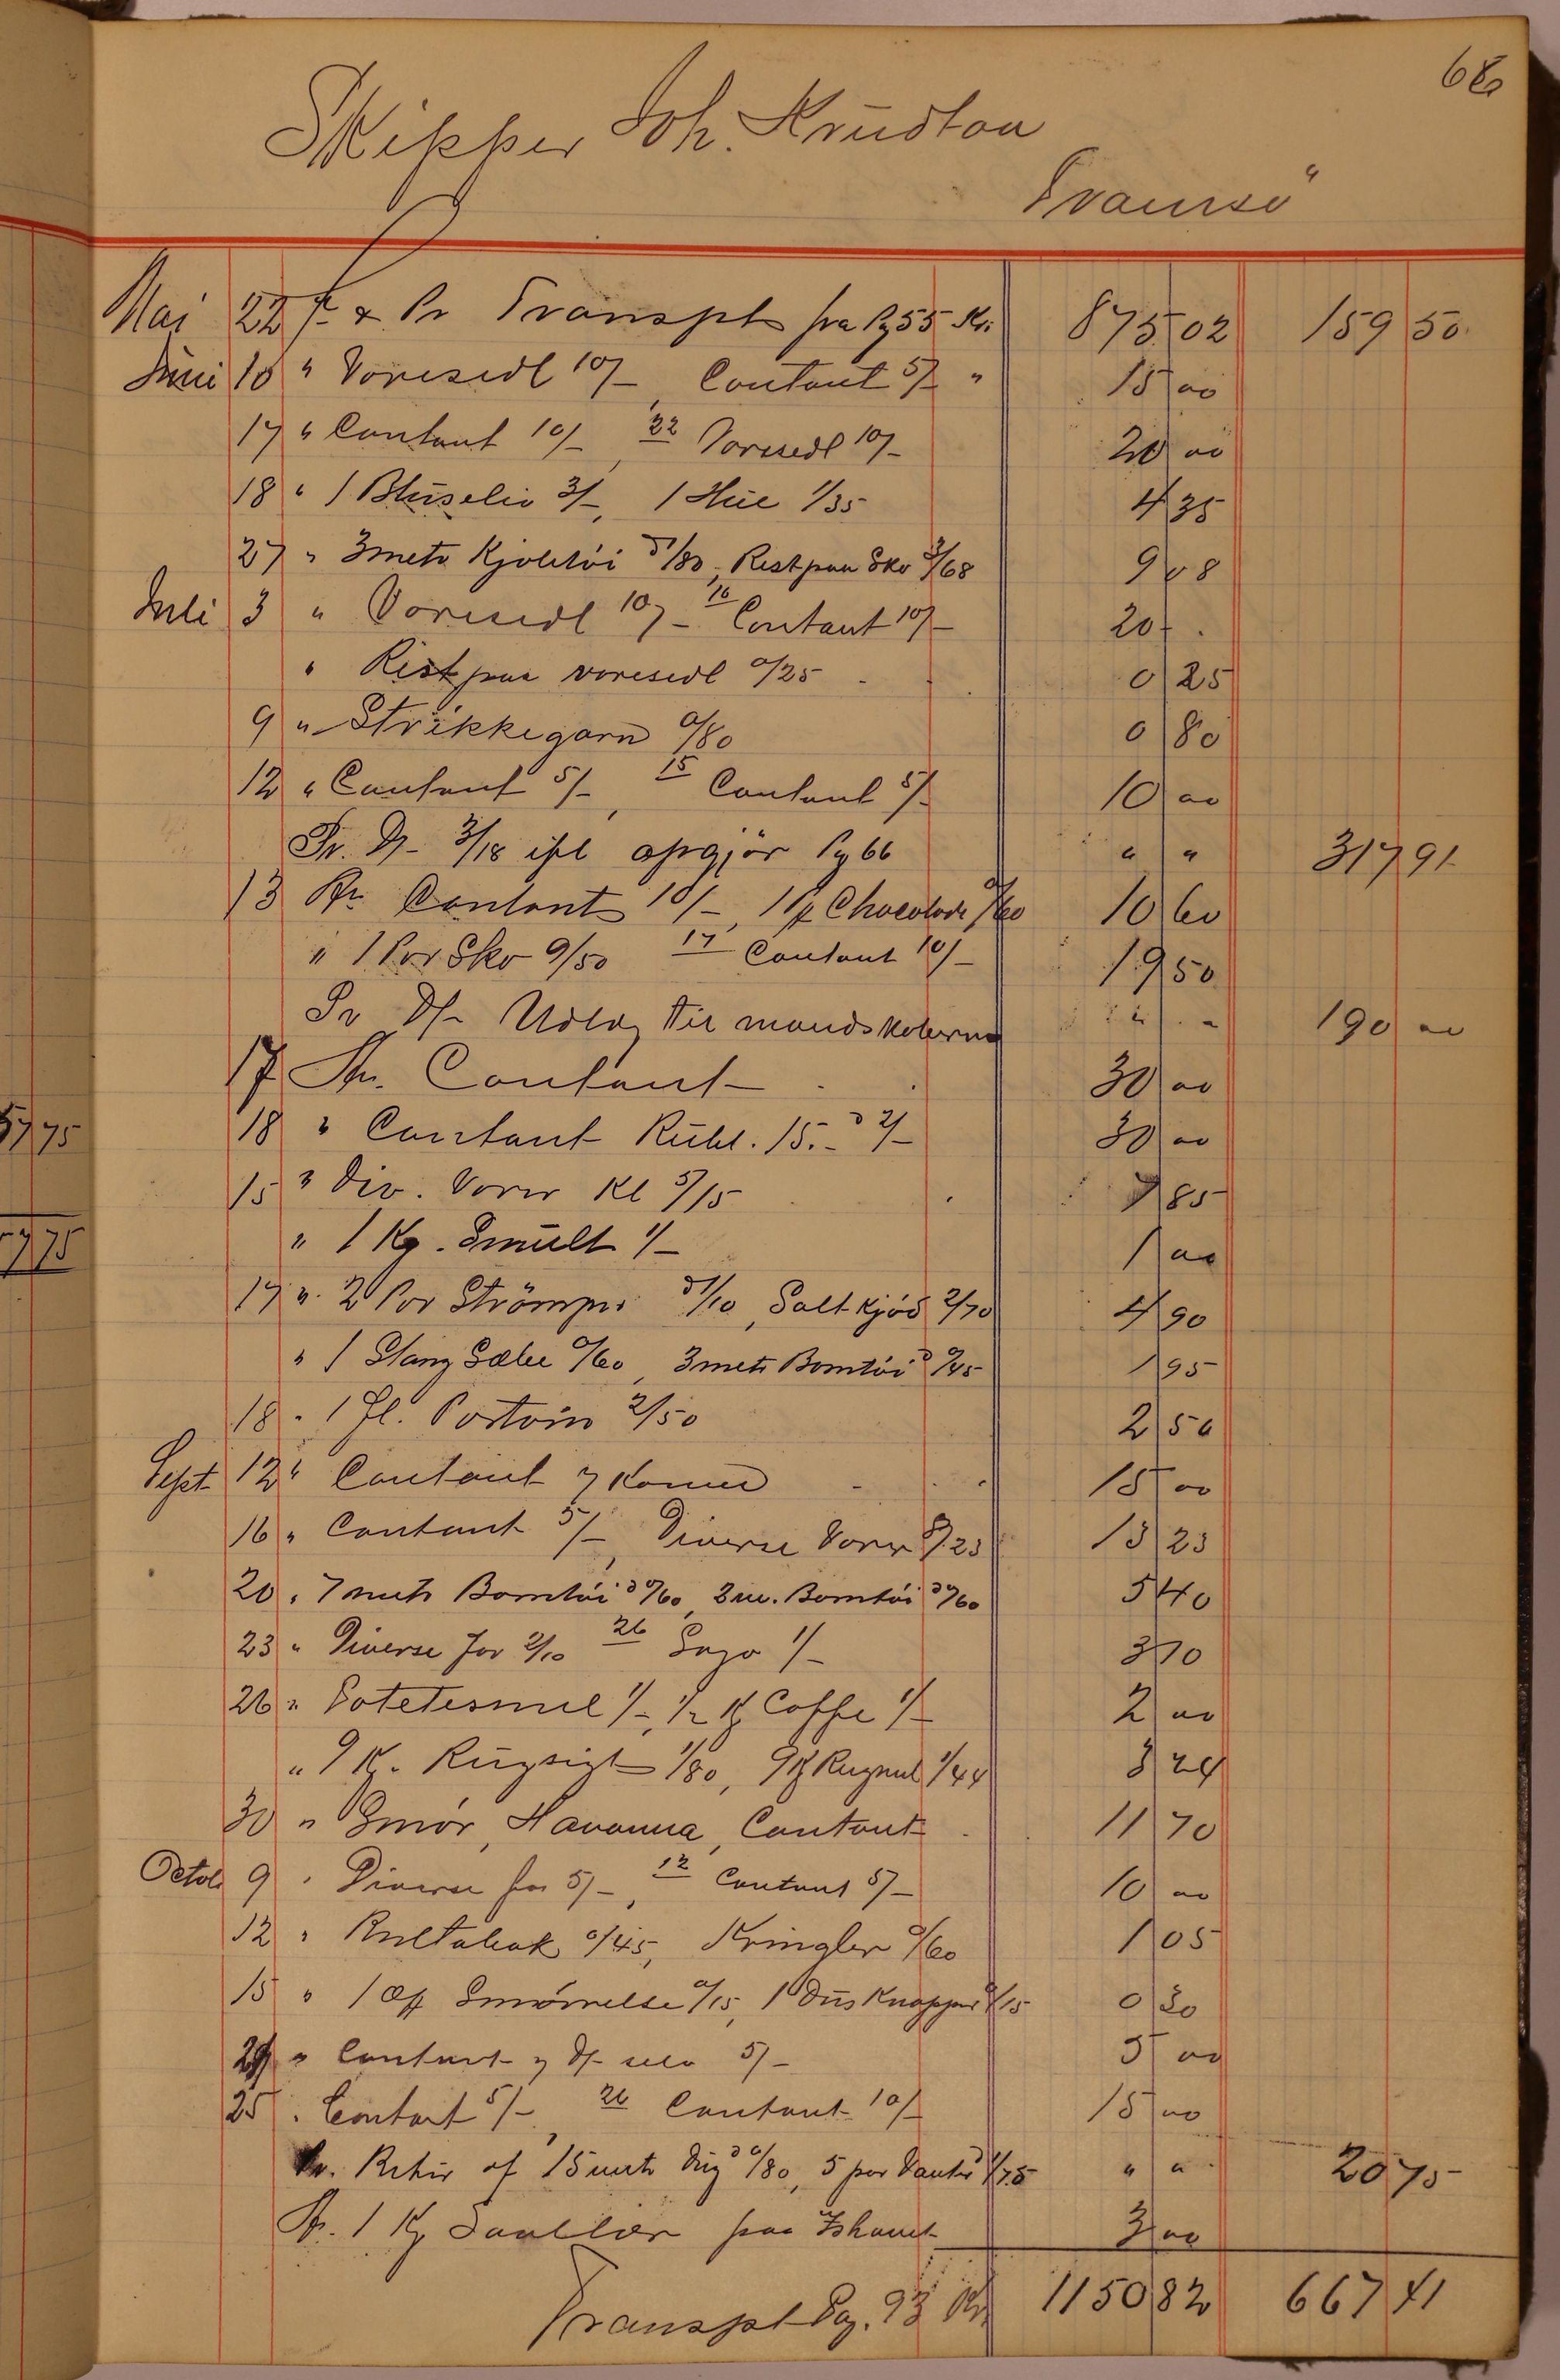 68
Skipper Joh. Krüdtaa
Tromsö"
Mai 22 Fr & Pr Transpt fra Pg 55 Kr: 875 02 159 50
Juni 10 " Varesedl 10/-, Contant 5/- " 15 00
17 " Contant 10/-, 22 Varesedl 10/- 20 00
18 " 1 Blüseliv 3/-, 1 Hüe 1/35 4 35
27 " 3 metr Kjoletöi à 1/80, Rest paa Sko 3/68 9 08
Juli 3 " Varesedl 10/- 16 Contant 10/- 20 -
" Rest paa varesedl 0/25 0 25
9 " Strikkegarn 0/80 0 80
12 " Contant 5/-, 15 Contant 5/- 10 00
Pr. D/- 3/18 ifl opgjör Pg 66 " " 317 91
13 Fr. Contant 10/-, 1 Pk Chocolade 0/60 10 60
" 1 Par Sko 9/50 17 Contant 10/- 19 50
Pr D/- Udlæg til mandskaberne " " 190 00
17 Fr. Contant 30 00
18 " Contant Rübl. 15.- à 2/- 30 00
15 " Div. Varer Kl 5/15 7 85
" 1 Kg. Smült 1/- 1 00
17 " 2 Par Strömper à 1/10, Salt kjöd 2/70 4 90
" 1 Stang Sæbe 0/60, 3 metr Bomtöi à 0/45 1 95
18 " 1 Fl. Portvin 2/50 2 50
Sept 12 " Contant y Konen 15 00
16 " Contant 5/-, Diverse Varer 8/23 13 23
20 " 7 metr Bomtöi à 0/60, 2 m. Bomtöi à 0/60 5 40
23 " Diverse for 2/10 26 Sago 1/- 3 10
26 " Potetesmel 1/-, 1/2 Kg Caffe 1/- 2 00
" 9 Kg. Rügsigt 1/80, 9 Kg Rugmel 1/44 3 24
30 " Smör, Havanna, Contant 11 70
Octob 9 " Diverse for 5/-, 12 Contant 5/- 10 00
12 " Rultabak 0/45, Kringler 0/60 1 05
15 " 1 Æsk Smörrelse 0/15, 1 Düs Knapper 0/15 0 30
29 " Contant y D/- selv 5/- 5 00
25 " Contant 5/-, 26 Contant 10/- 15 00
Pr. Retür af 15 metr Düg à 0/80, 5 par Vanter à 1/75 " " 20 75
Fr. 1 Kg Saallær 3 00
Transpt Pag. 93 Kr. 1150 82 667 41
57 75
57 75